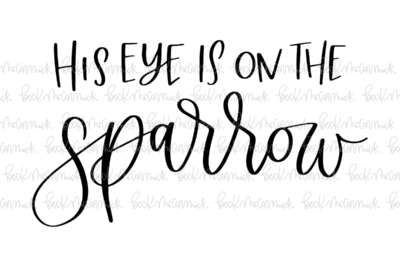 HIS EYE IS ON THE
sparrow